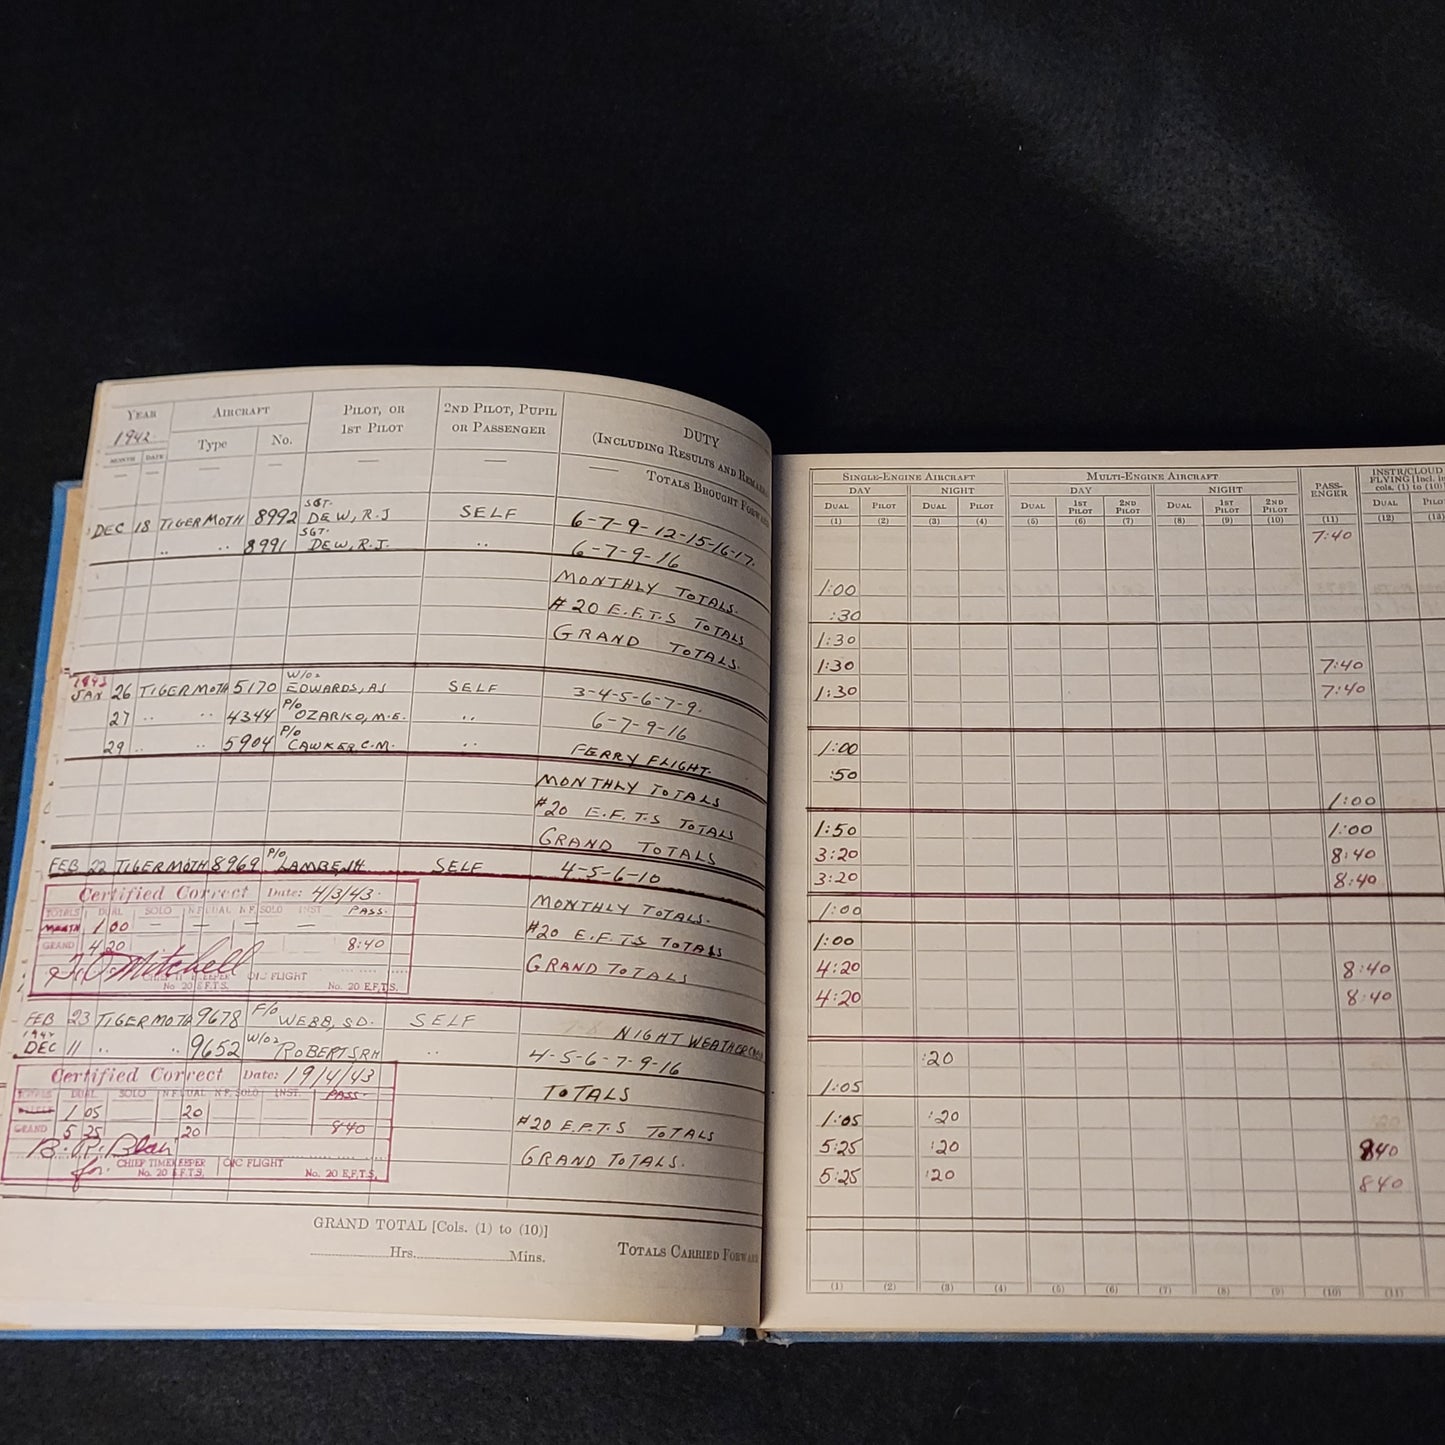 YEAR AIRCRAFT PILOT, OR 1ST PILOT 2ND PILOT, PUPIL OR PASSENGER DUTY
1942 Type No. (INCLUDING RESULTS AND REMARKS
MONTH DATE
— — — — —
TOTALS BROUGHT FORWARD
DEC 18 TIGER MOTH 8992 SGT. DEW, R.J SELF 6-7-9-12-15-16-17.
.. .. 8991 SGT. DEW, R.J. .. 6-7-9-16
MONTHLY TOTALS.
#20 E.F.T.S TOTALS
GRAND TOTALS.
1943
JAN 26 TIGER MOTH 5170 W/O2 EDWARDS, AJ SELF 3-4-5-6-7-9.
27 .. .. 4344 P/O OZARKO, M.E. .. 6-7-9-16
29 .. .. 5904 P/O CAWKER, C.M. .. FERRY FLIGHT.
MONTHLY TOTALS
#20 E.F.T.S TOTALS
GRAND TOTALS
FEB 22 TIGER MOTH 8969 P/O SELF 4-5-6-10
Certified Correct Date: 4/3/43
TOTALS DUAL SOLO N.F. DUAL N.F. SOLO INST PASS.
MONTH 1 00 — — — —
GRAND 4 20 8:40
Mitchell
CHIEF TIMEKEEPER O/C FLIGHT
No. 20 E.F.T.S. No. 20 E.F.T.S.
MONTHLY TOTALS.
#20 E.F.T.S TOTALS
GRAND TOTALS
FEB 23 TIGER MOTH 9678 F/O WEBB, S.D. SELF NIGHT WEATHER
1942
DEC 11 .. .. 9652 W/O2 ROBERTS RH .. 4-5-6-7-9-16
Certified Correct Date: 19/4/43
TOTALS DUAL SOLO N.F. DUAL N.F. SOLO INST. PASS.
1 05 20
GRAND 5 25 20 840
B. R. Blair
for. CHIEF TIMEKEEPER O/C FLIGHT
No. 20 E.F.T.S. No. 20 E.F.T.S.
TOTALS
#20 E.F.T.S TOTALS
GRAND TOTALS.
GRAND TOTAL [Cols. (1) to (10)]
Hrs. Mins.
TOTALS CARRIED FORWARD
SINGLE-ENGINE AIRCRAFT MULTI-ENGINE AIRCRAFT PASS-ENGER INSTR/CLOUD FLYING [Incl. in cols. (1) to (10)
DAY NIGHT DAY NIGHT
DUAL PILOT DUAL PILOT DUAL 1ST PILOT 2ND PILOT DUAL 1ST PILOT 2ND PILOT DUAL PILOT
(1) (2) (3) (4) (5) (6) (7) (8) (9) (10) (11) (12) (13)
7:40
1:00
:30
1:30
1:30 7:40
1:30 7:40
1:00
:50
1:00
1:50 1:00
3:20 8:40
3:20 8:40
1:00
1:00
4:20 8:40
4:20 8:40
:20
1:05
1:05 :20
5:25 :20 840
5:25 :20 840
(1) (2) (3) (4) (5) (6) (7) (8) (9) (10) (11)